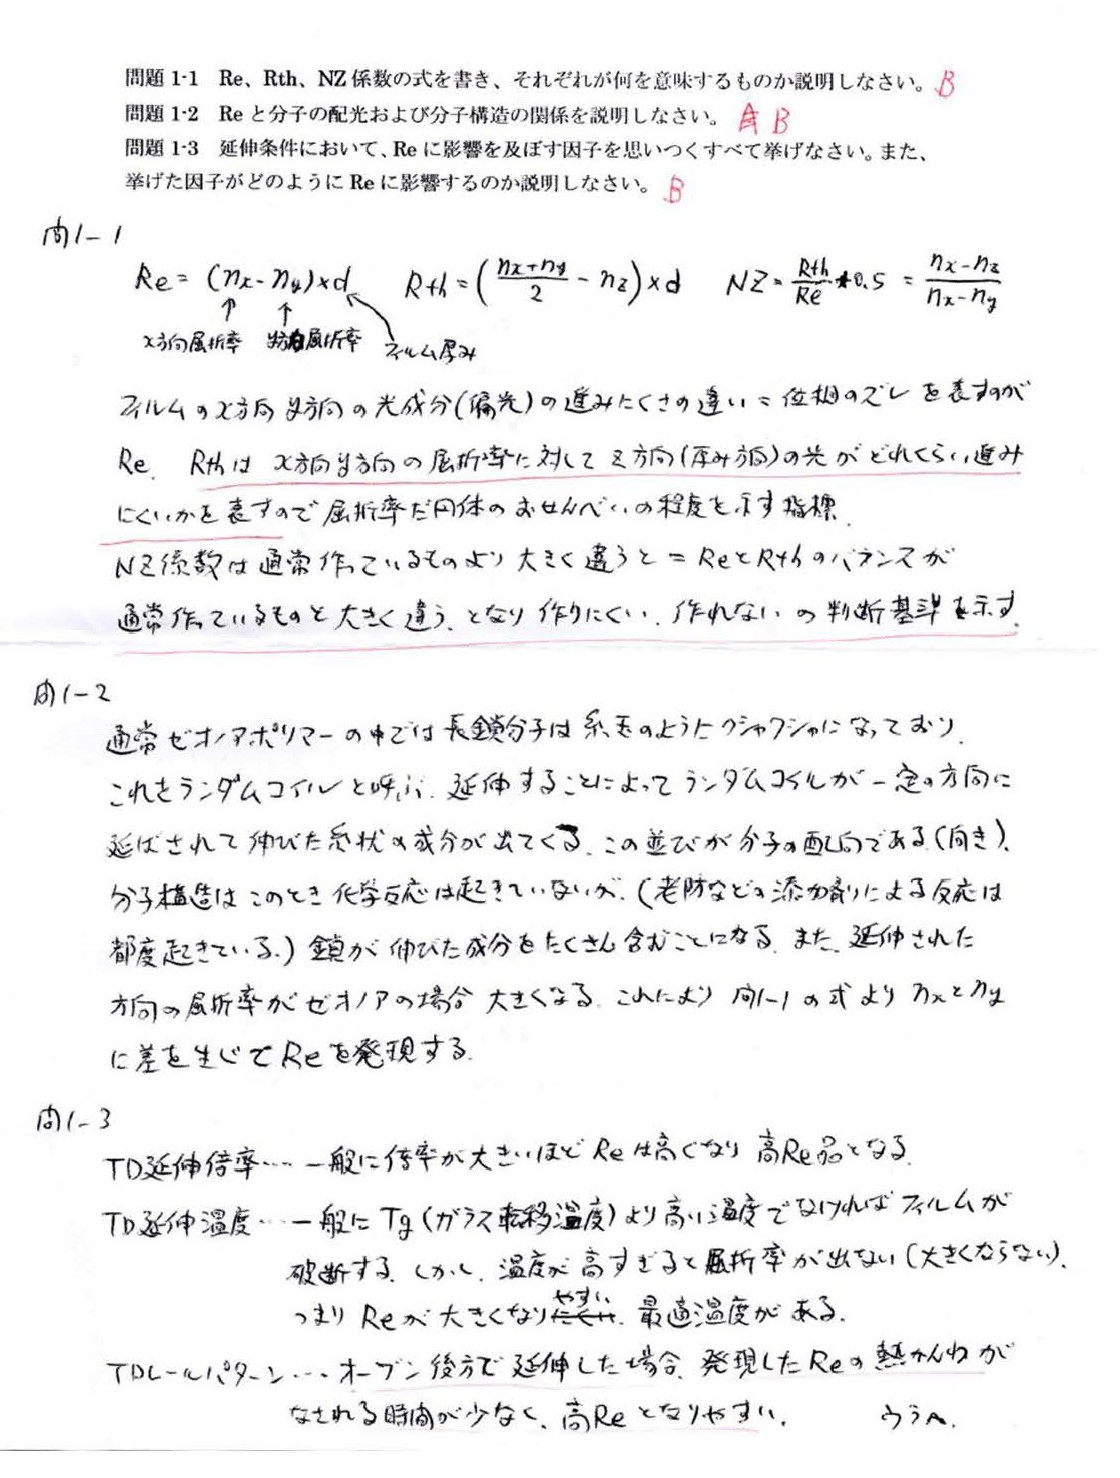 問題 1-1　Re、Rth、NZ 係数の式を書き、それぞれが何を意味するものか説明しなさい。 B
問題 1-2　Re と分子の配光および分子構造の関係を説明しなさい。 A B
問題 1-3　延伸条件において、Re に影響を及ぼす因子を思いつくすべて挙げなさい。また、
挙げた因子がどのように Re に影響するのか説明しなさい。 B
問1-1
Re = (nx - ny)×d　Rth = ((nx+ny)/2 - nz)×d　NZ = Rth/Re + 0.5 = (nx-nz)/(nx-ny)
x方向屈折率　y方向屈折率　フィルム厚み
フィルムのx方向y方向の光成分(偏光)の進みにくさの違い＝位相のズレを表すのが
Re. Rthはx方向y方向の屈折率に対してz方向(厚み方向)の光がどれくらい進み
にくいかを表すので屈折率だ円体のおせんべいの程度を示す指標.
NZ係数は通常作っているものより大きく違うと＝ReとRthのバランスが
通常作っているものと大きく違う、となり作りにくい、作れないの判断基準を示す.
問1-2
通常ゼオノアポリマーの中では長鎖分子は糸玉のようにクシャクシャになっており、
これをランダムコイルと呼ぶ. 延伸することによってランダムコイルが一定の方向に
延ばされて伸びた糸状の成分が出てくる. この並びが分子の配向である(向き).
分子構造はこのとき化学反応は起きていないが、(老防などの添加剤による反応は
都度起きている.) 鎖が伸びた成分をたくさん含むことになる. また、延伸された
方向の屈折率がゼオノアの場合大きくなる. これにより問1-1の式よりnxとny
に差を生じてReを発現する.
問1-3
TD延伸倍率… 一般に倍率が大きいほどReは高くなり高Re品となる.
TD延伸温度… 一般にTg(ガラス転移温度)より高い温度でなければフィルムが
破断する. しかし、温度が高すぎると屈折率が出ない(大きくならない).
つまりReが大きくなりやすい最適温度がある.
TDレールパターン… オーブン後方で延伸した場合、発現したReの熱かんわが
なされる時間が少なく、高Reとなりやすい. ウラへ.